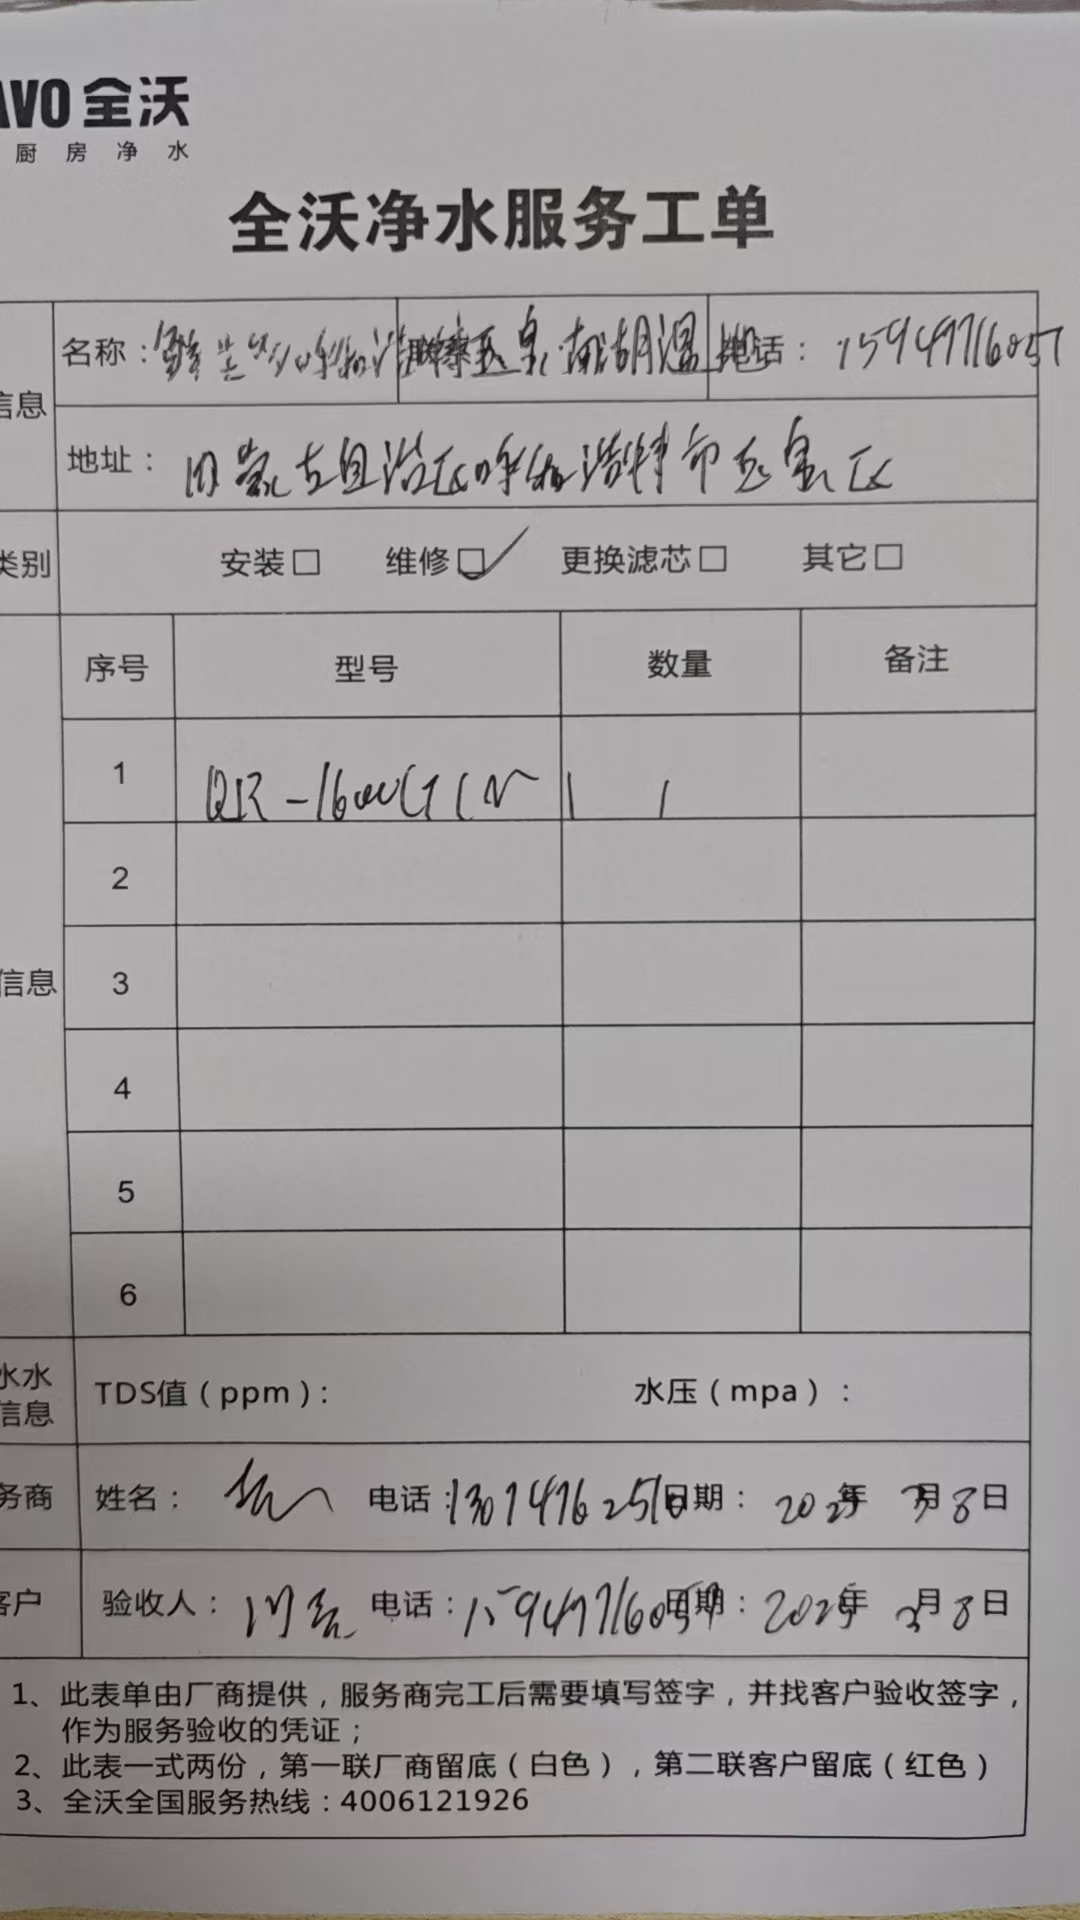 AVO 全沃
厨房净水
全沃净水服务工单
信息
名称： 电话： 15949716057
地址： 内蒙古自治区呼和浩特市玉泉区
类别 安装□ 维修□ 更换滤芯□ 其它□
序号 型号 数量 备注
1 QR-1600G 1
2
信息 3
4
5
6
水水
信息
TDS值（ppm）： 水压（mpa）：
务商 姓名： 电话： 日期： 2025年 3月8日
客户 验收人： 电话：15949716057 日期： 2025年 3月8日
1、此表单由厂商提供，服务商完工后需要填写签字，并找客户验收签字，
作为服务验收的凭证；
2、此表一式两份，第一联厂商留底（白色），第二联客户留底（红色）
3、全沃全国服务热线：4006121926